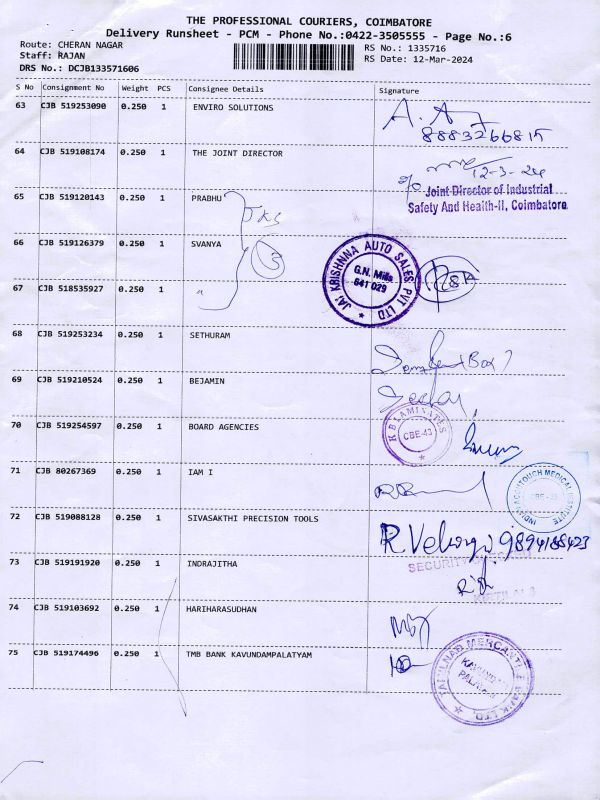 THE PROFESSIONAL COURIERS, COIMBATORE
Delivery Runsheet - PCM - Phone No.:0422-3505555 - Page No.:6
Route: CHERAN NAGAR
Staff: RAJAN
DRS No.: DCJB133571606
RS No.: 1335716
RS Date: 12-Mar-2024
S No Consignment No Weight PCS Consignee Details Signature
63 CJB 519253090 0.250 1 ENVIRO SOLUTIONS
64 CJB 519108174 0.250 1 THE JOINT DIRECTOR
12-3-24
Joint Director of Industrial
Safety And Health-II, Coimbatore
65 CJB 519120143 0.250 1 PRABHU
66 CJB 519126379 0.250 1 SVANYA
3
JAI KRISHNNA AUTO SALES PVT LTD
G.N. Mills
641 029
67 CJB 518535927 0.250 1
68 CJB 519253234 0.250 1 SETHURAM
69 CJB 519210524 0.250 1 BEJAMIN
70 CJB 519254597 0.250 1 BOARD AGENCIES
K B LAMINATES
CBE-43
71 CJB 80267369 0.250 1 IAM I
72 CJB 519088128 0.250 1 SIVASAKTHI PRECISION TOOLS
9894188423
73 CJB 519191920 0.250 1 INDRAJITHA
SECURITY
74 CJB 519103692 0.250 1 HARIHARASUDHAN
75 CJB 519174496 0.250 1 TMB BANK KAVUNDAMPALATYAM
TAMILNAD MERCANTILE BANK LTD.